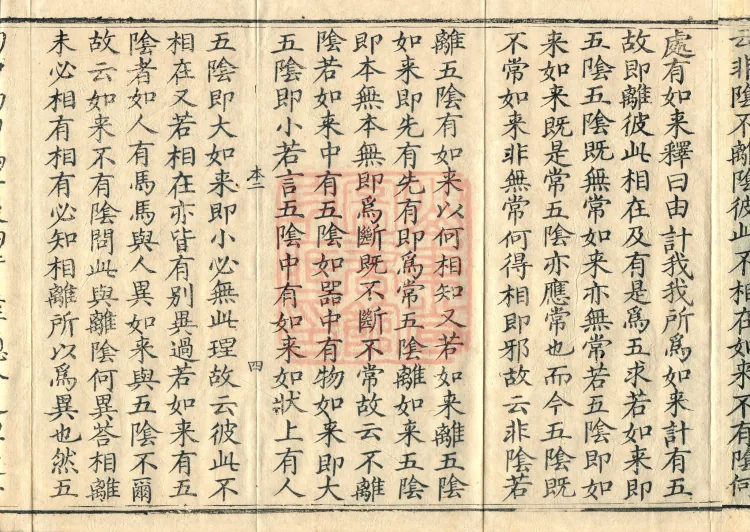 云非陰不離陰彼此不相在如来不有陰何
處有如来釋曰由計我我所為如来計有五
故即離彼此相在及有是為五求若如来即
五陰五陰既無常如来亦無常若五陰即如
来如来既是常五陰亦應常也而今五陰既
不常如来非無常何得相即邪故云非陰若
離五陰有如来以何相知又若如来離五陰
如来即先有先有即為常五陰離如来五陰
即本無本無即為斷既不斷不常故云不離
陰若如来中有五陰如器中有物如来即大
五陰即小若言五陰中有如来如狀上有人
本二
四
五陰即大如来即小必無此理故云彼此不
相在又若相在亦皆有別異過若如来有五
陰者如人有馬馬與人異如来與五陰不爾
故云如来不有陰問此與離陰何異荅相離
未必相有相有必知相離所以為異也然五